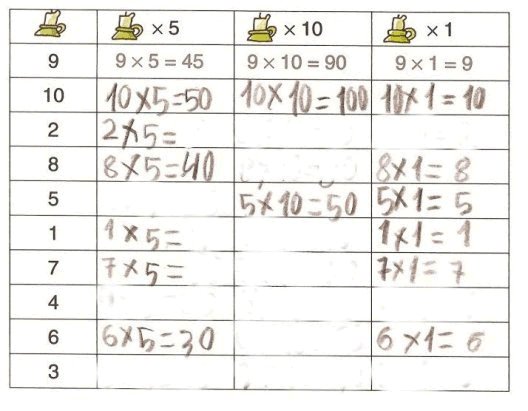 × 5 × 10 × 1
9 9 × 5 = 45 9 × 10 = 90 9 × 1 = 9
10 10×5=50 10×10=100 10×1=10
2 2×5=
8 8×5=40 8×1=8
5 5×10=50 5×1=5
1 1×5= 1×1=1
7 7×5= 7×1=7
4
6 6×5=30 6×1=6
3